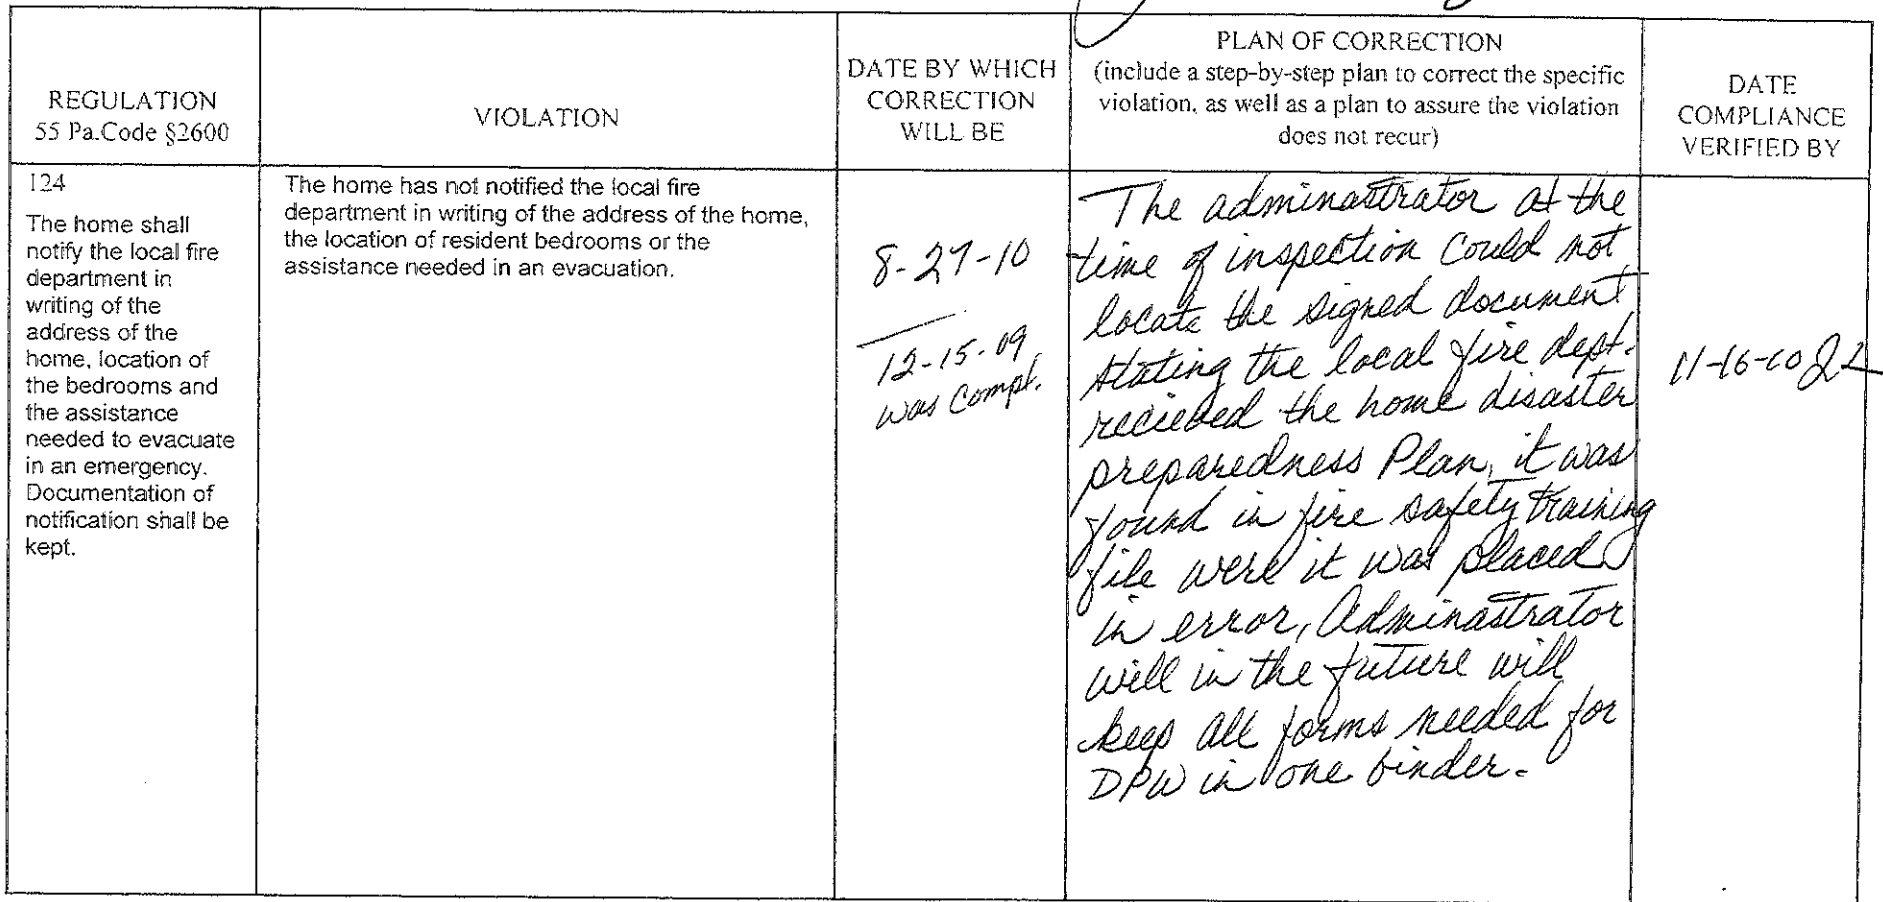 REGULATION
55 Pa.Code §2600
VIOLATION
DATE BY WHICH
CORRECTION
WILL BE
PLAN OF CORRECTION
(include a step-by-step plan to correct the specific
violation, as well as a plan to assure the violation
does not recur)
DATE
COMPLIANCE
VERIFIED BY
124
The home shall
notify the local fire
department in
writing of the
address of the
home, location of
the bedrooms and
the assistance
needed to evacuate
in an emergency.
Documentation of
notification shall be
kept.
The home has not notified the local fire
department in writing of the address of the home,
the location of resident bedrooms or the
assistance needed in an evacuation.
8-27-10
12-15-09
was Compl.
The adminastrator at the
time of inspection Could not
locate the signed document
stating the local fire dept.
recieved the home disaster
preparedness Plan, it was
found in fire safety training
file were it was placed
in error, Adminastrator
will in the future will
keep all forms needed for
DPW in one binder.
11-16-10